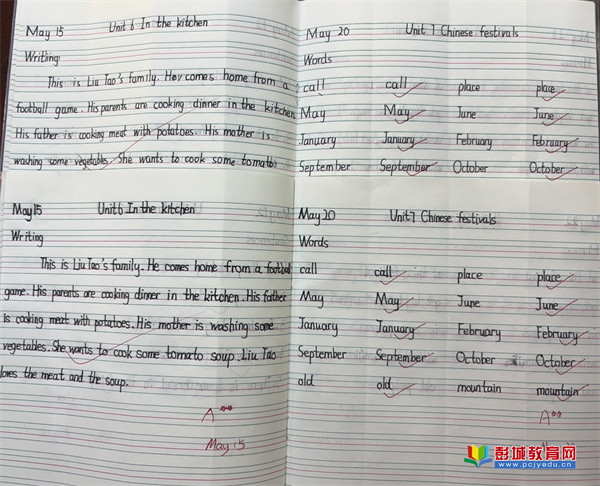 May 15 Unit 6 In the kitchen
Writing
This is Liu Tao's family. He comes home from a
football game. His parents are cooking dinner in the kitchen.
His father is cooking meat with potatoes. His mother is
washing some vegetables. She wants to cook some tomato
May 20 Unit 7 Chinese festivals
Words
call call place place
May May June June
January January February February
September September October October
May 15 Unit 6 In the kitchen
Writing
This is Liu Tao's family. He comes home from a football
game. His parents are cooking dinner in the kitchen. His father
is cooking meat with potatoes. His mother is washing some
vegetables. She wants to cook some tomato soup. Liu Tao
loves the meat and the soup.
A☆☆
May 15
May 20 Unit 7 Chinese festivals
Words
call call place place
May May June June
January January February February
September September October October
old old mountain mountain
A☆☆
彭城教育网
www.pcjyedu.cn